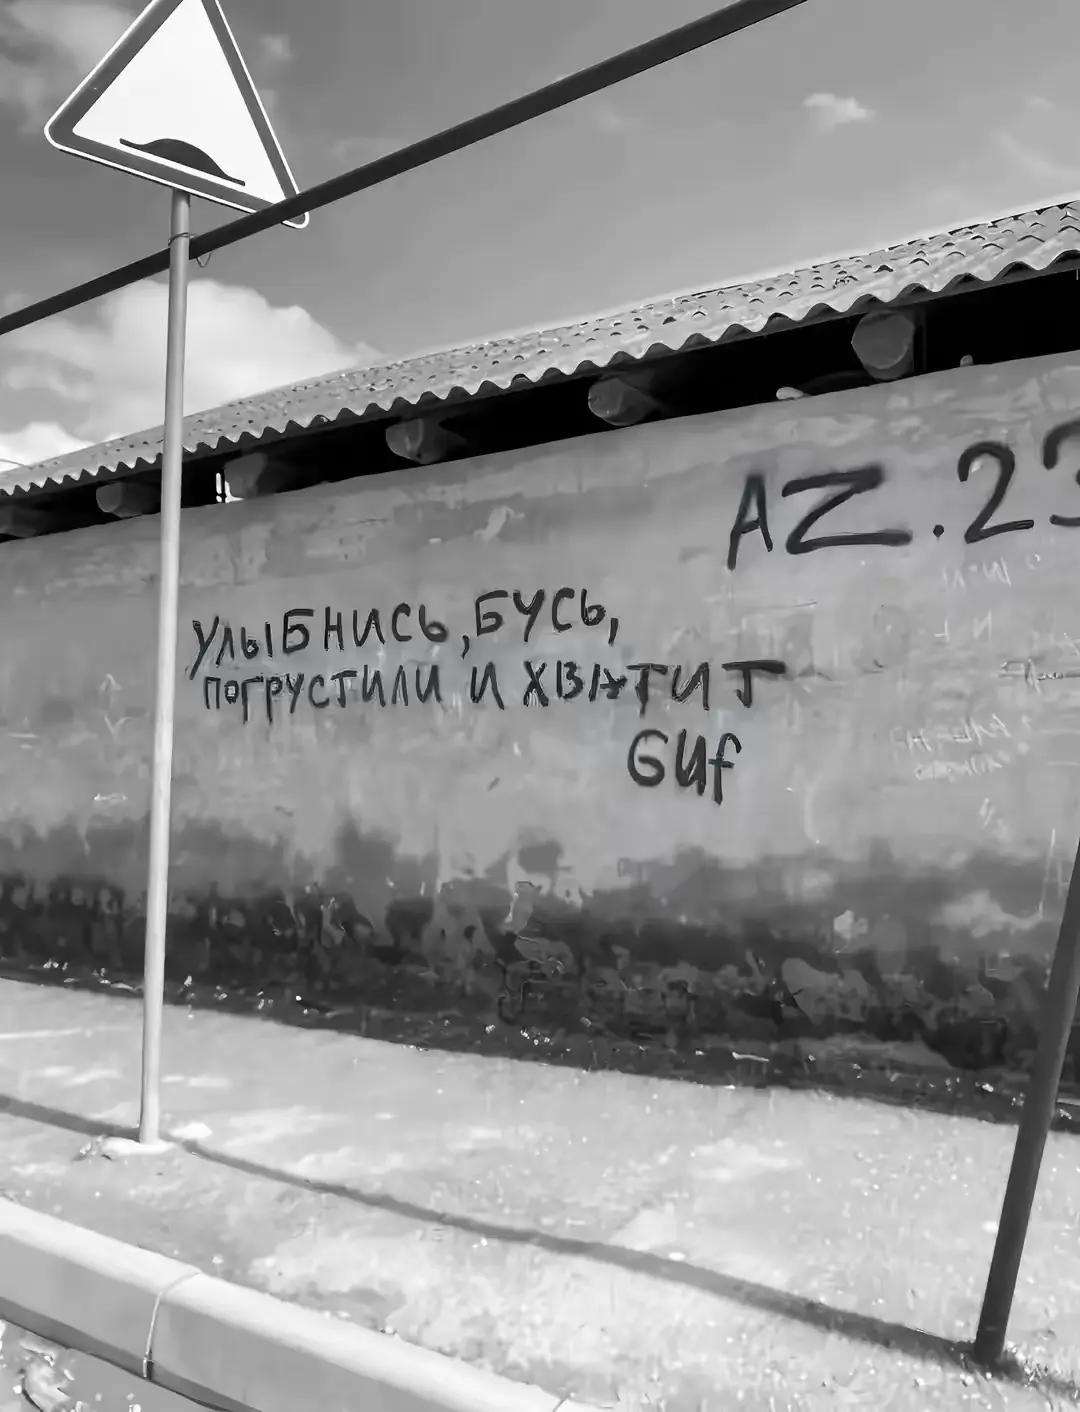 AZ.23
УЛЫБНИСЬ, БУСЬ,
ПОГРУСТИЛИ И ХВАТИТ
GUf